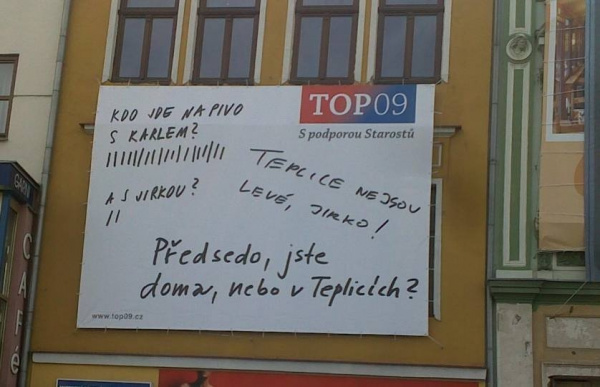 KDO JDE NA PIVO
S KARLEM?
A S JIRKOU?
TOP09
S podporou Starostů
TEPLICE NEJSOU
LEVÉ, JIRKO!
Předsedo, jste
doma, nebo v Teplicích?
www.top09.cz
CAFÉ